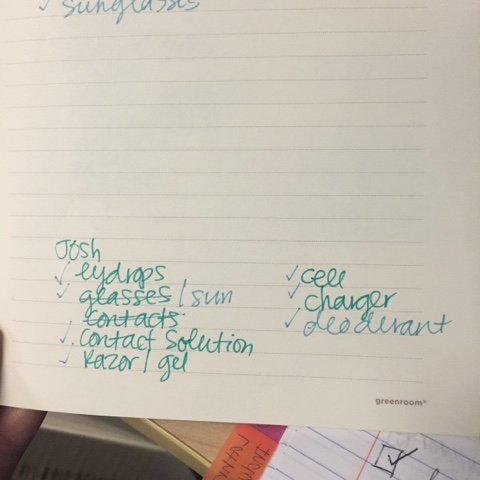 ✓ sunglasses
Josh
✓ eydrops
✓ glasses / sun
contacts
✓. contact solution
✓ Razor / gel
✓ cell
✓ charger
✓ deoderant
greenroom®